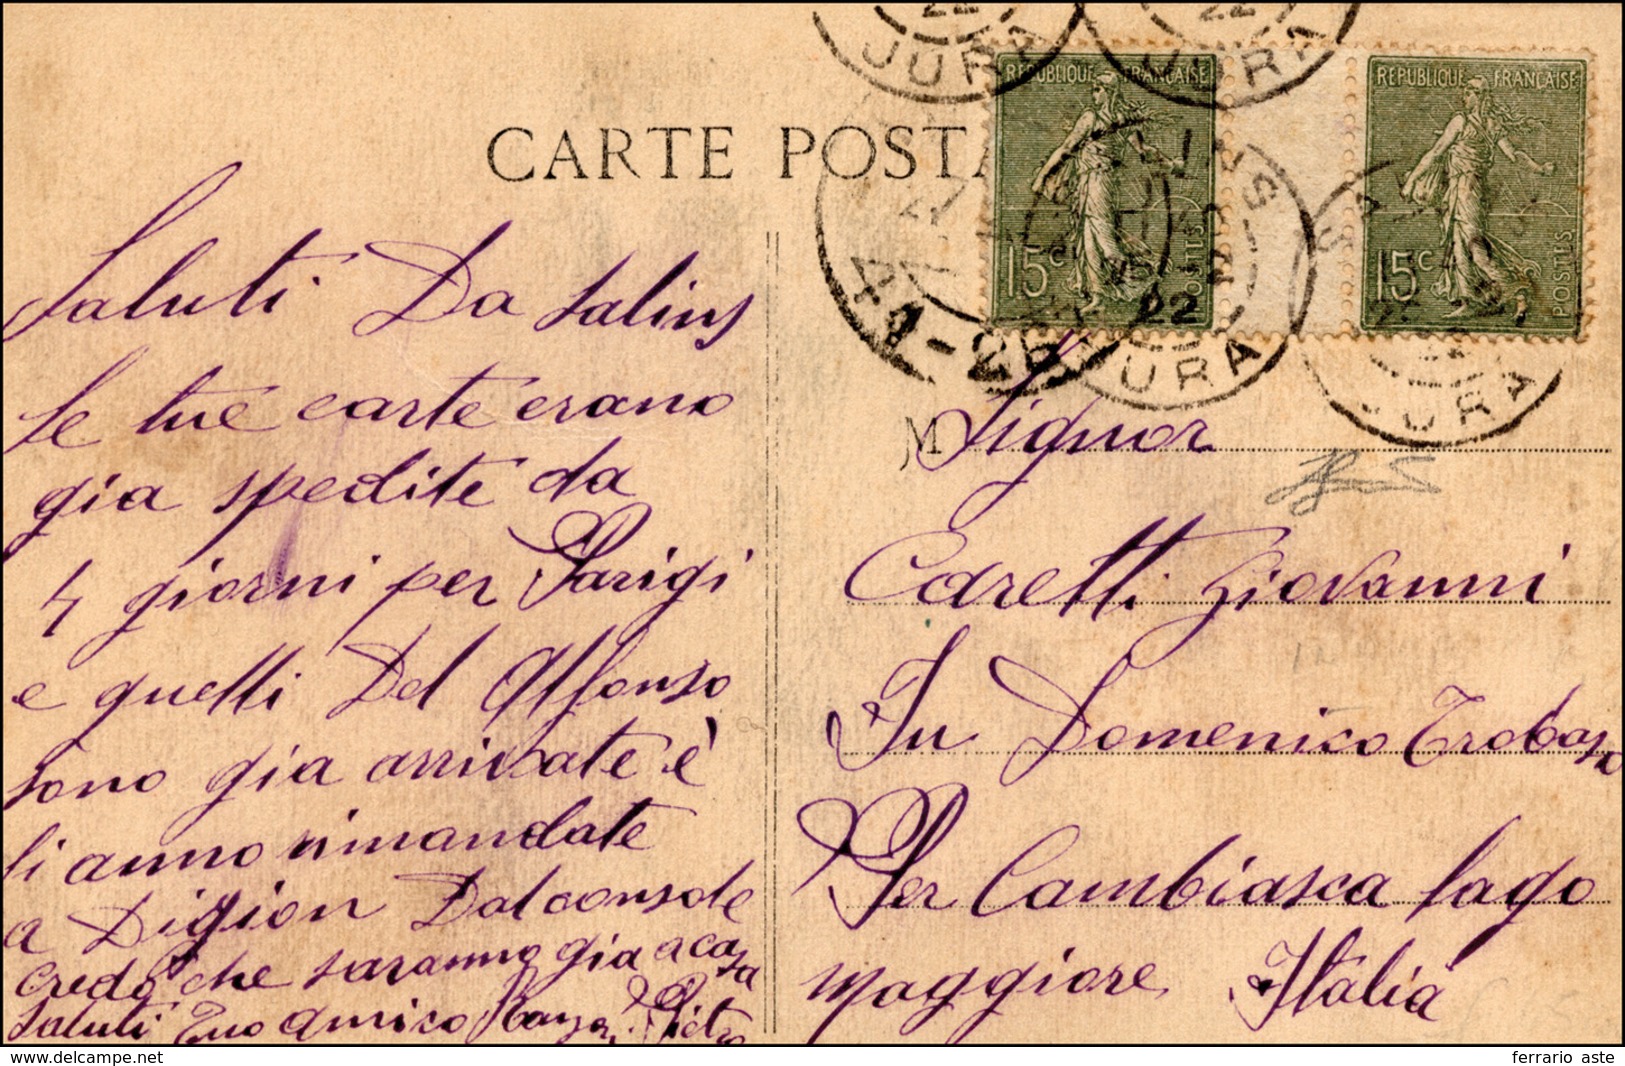 CARTE POSTA
RÉPUBLIQUE FRANÇAISE
15c
POSTES
RÉPUBLIQUE FRANÇAISE
15c
POSTES
JURA
JURA
SALINS
22
JURA
Saluti Da Salins
le tue carte erano
gia spedite da
4 giorni per Parigi
e quelli Del Alfonso
sono gia arrivate è
li anno rimandate
a Digion Dal console
Credo che saranno gia a casa
Saluti Tuo amico Pietro
M Signor
Caretti Giovanni
Fu Domenico Trobaso
Per Cambiasca lago
maggiore Italia
ferrario aste